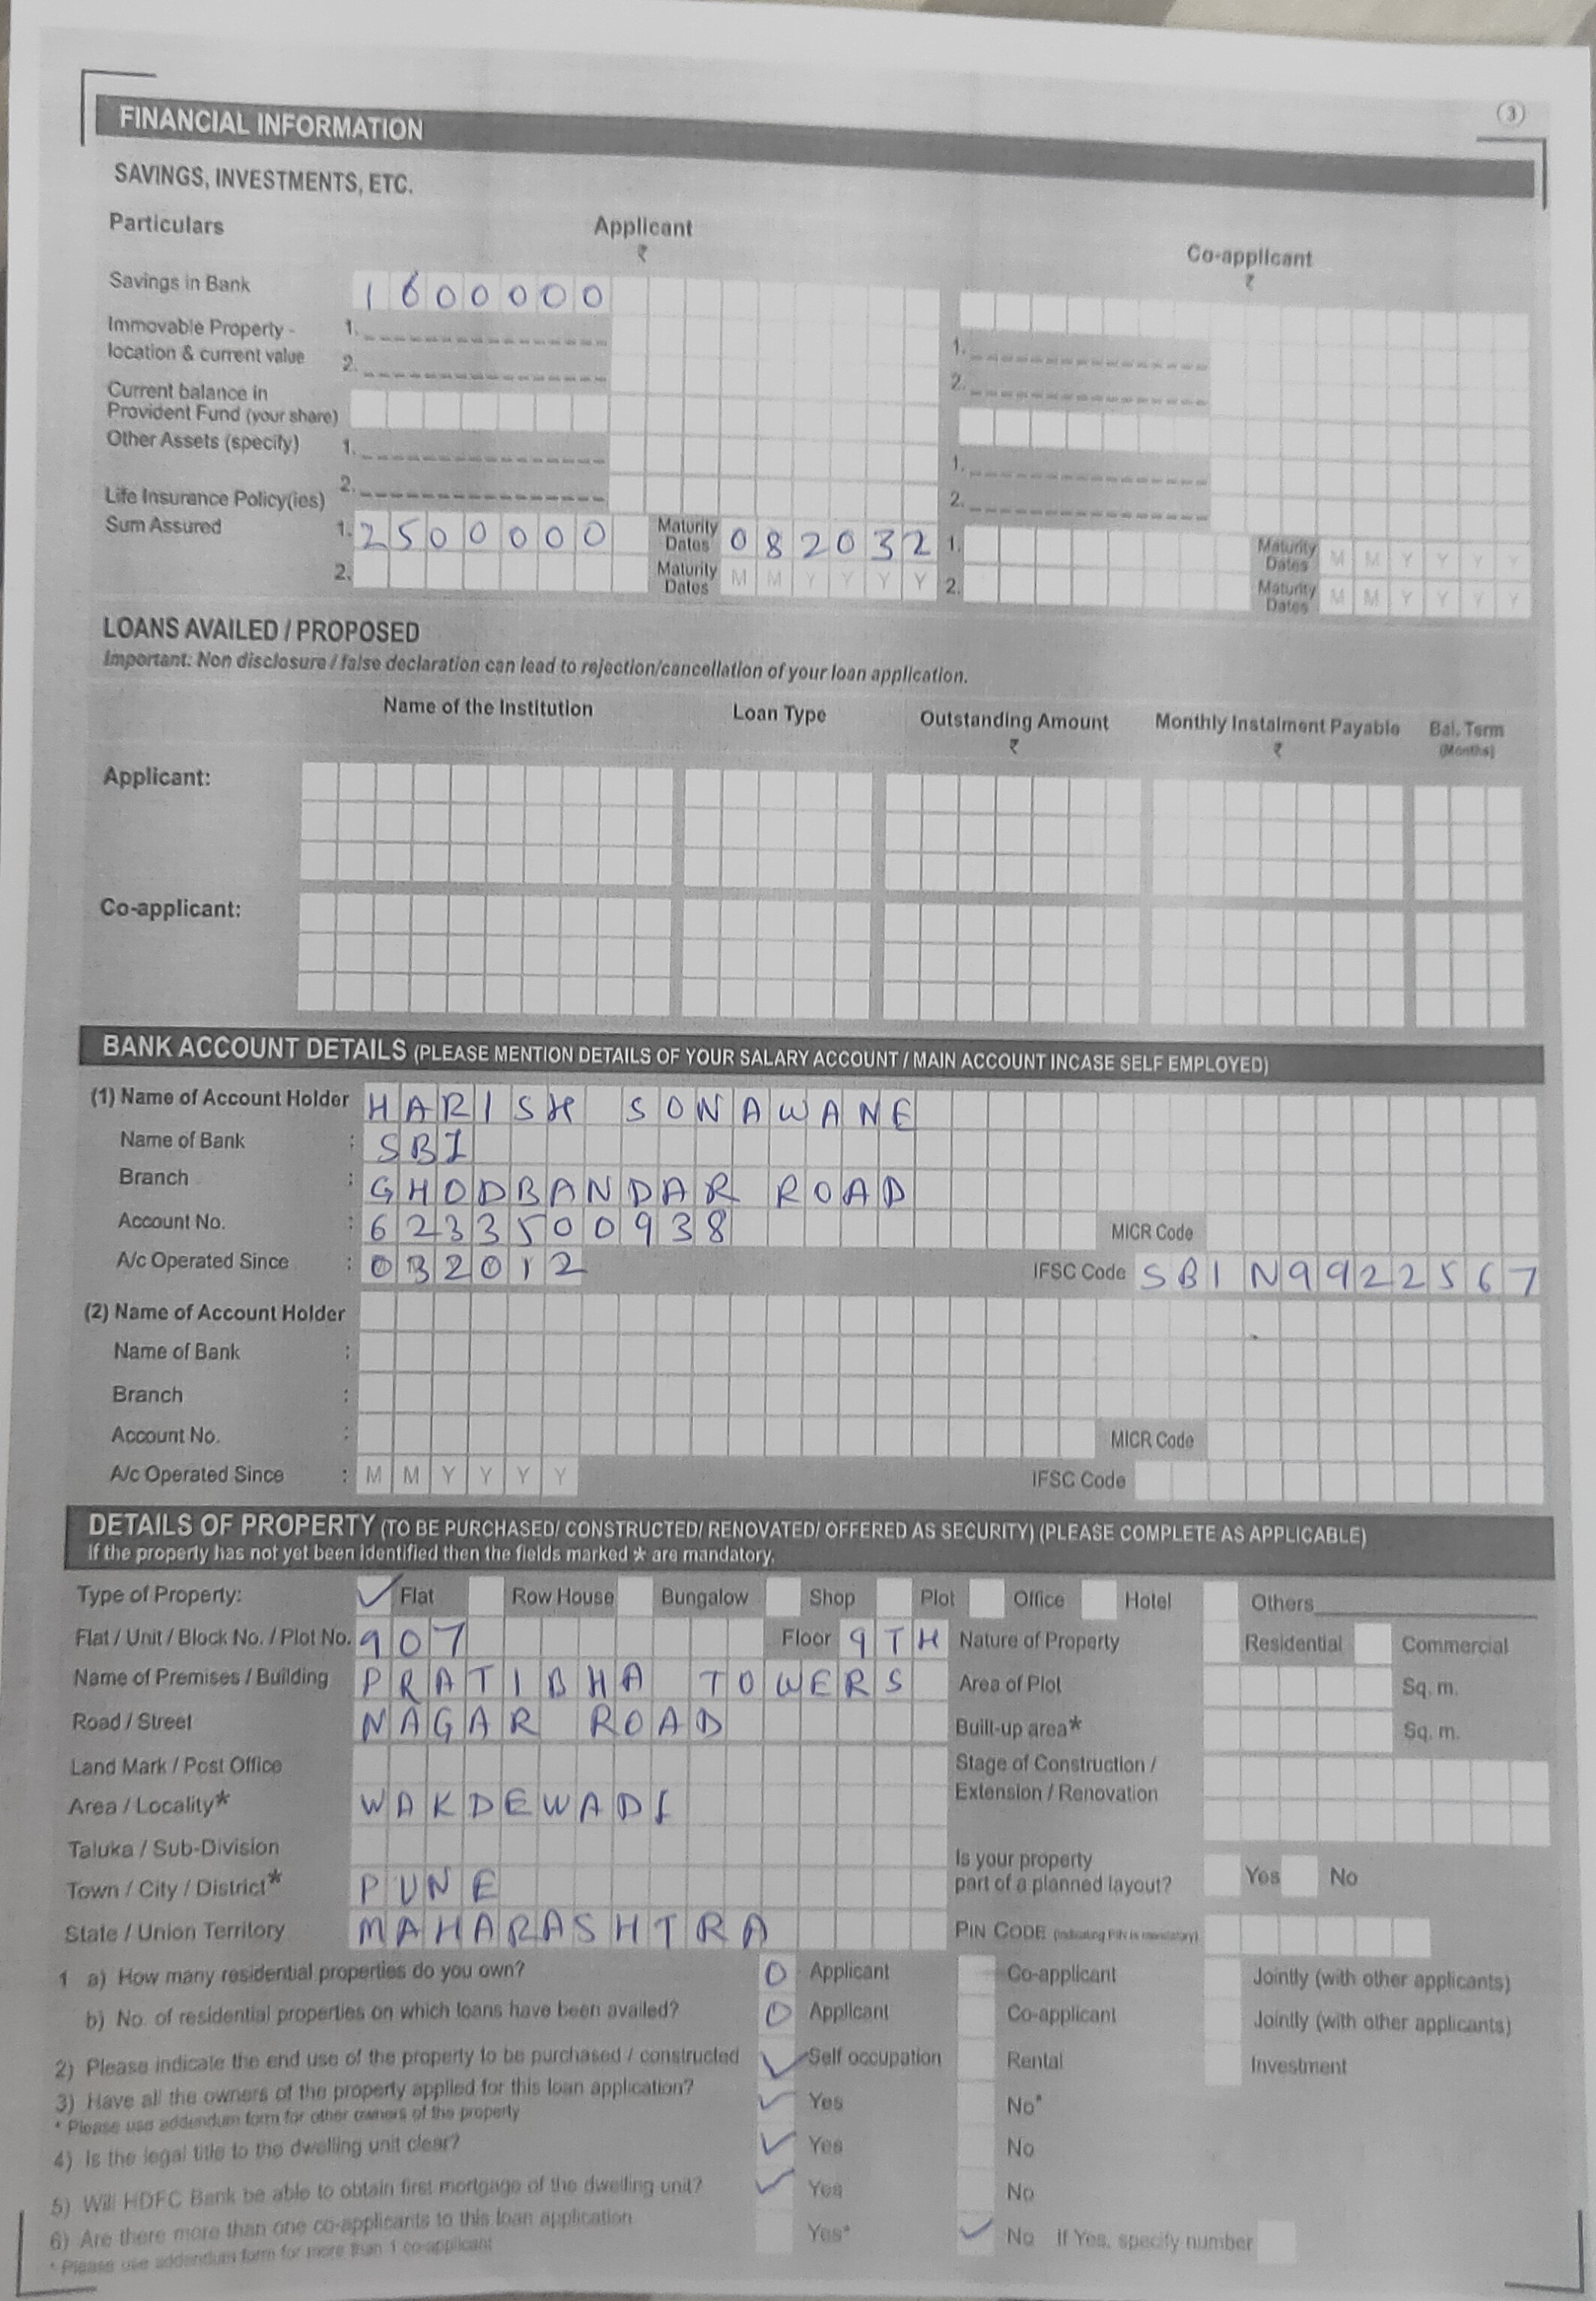 3
FINANCIAL INFORMATION
SAVINGS, INVESTMENTS, ETC.
Particulars Applicant Co-applicant
₹ ₹
Savings in Bank 1600000
Immovable Property - 1. 1.
location & current value 2. 2.
Current balance in
Provident Fund (your share)
Other Assets (specify) 1. 1.
2. 2.
Life Insurance Policy(ies)
Sum Assured 1. 2500000 Maturity Dates 082032 1. Maturity Dates M M Y Y Y Y
2. Maturity Dates M M Y Y Y Y 2. Maturity Dates M M Y Y Y Y
LOANS AVAILED / PROPOSED
Important: Non disclosure / false declaration can lead to rejection/cancellation of your loan application.
Name of the Institution Loan Type Outstanding Amount Monthly Instalment Payable Bal. Term
₹ ₹ (Months)
Applicant:
Co-applicant:
BANK ACCOUNT DETAILS (PLEASE MENTION DETAILS OF YOUR SALARY ACCOUNT / MAIN ACCOUNT INCASE SELF EMPLOYED)
(1) Name of Account Holder HARISH SONAWANE
Name of Bank : SBI
Branch : GHODBANDAR ROAD
Account No. : 6233500938 MICR Code
A/c Operated Since : 032012 IFSC Code SBIN9922567
(2) Name of Account Holder
Name of Bank :
Branch :
Account No. : MICR Code
A/c Operated Since : M M Y Y Y Y IFSC Code
DETAILS OF PROPERTY (TO BE PURCHASED/ CONSTRUCTED/ RENOVATED/ OFFERED AS SECURITY) (PLEASE COMPLETE AS APPLICABLE)
If the property has not yet been identified then the fields marked * are mandatory.
Type of Property: ✓ Flat Row House Bungalow Shop Plot Office Hotel Others
Flat / Unit / Block No. / Plot No. 907 Floor 9TH Nature of Property Residential Commercial
Name of Premises / Building PRATIBHA TOWERS Area of Plot Sq. m.
Road / Street NAGAR ROAD Built-up area* Sq. m.
Land Mark / Post Office Stage of Construction /
Area / Locality* WAKDEWADI Extension / Renovation
Taluka / Sub-Division Is your property
Town / City / District* PUNE part of a planned layout? Yes No
State / Union Territory MAHARASHTRA PIN CODE (indicating PIN is mandatory)
1 a) How many residential properties do you own? 0 Applicant Co-applicant Jointly (with other applicants)
b) No. of residential properties on which loans have been availed? 0 Applicant Co-applicant Jointly (with other applicants)
2) Please indicate the end use of the property to be purchased / constructed ✓ Self occupation Rental Investment
3) Have all the owners of the property applied for this loan application? ✓ Yes No*
* Please use addendum form for other owners of the property
4) Is the legal title to the dwelling unit clear? ✓ Yes No
5) Will HDFC Bank be able to obtain first mortgage of the dwelling unit? ✓ Yes No
6) Are there more than one co-applicants to this loan application Yes* ✓ No If Yes, specify number
* Please use addendum form for more than 1 co-applicant